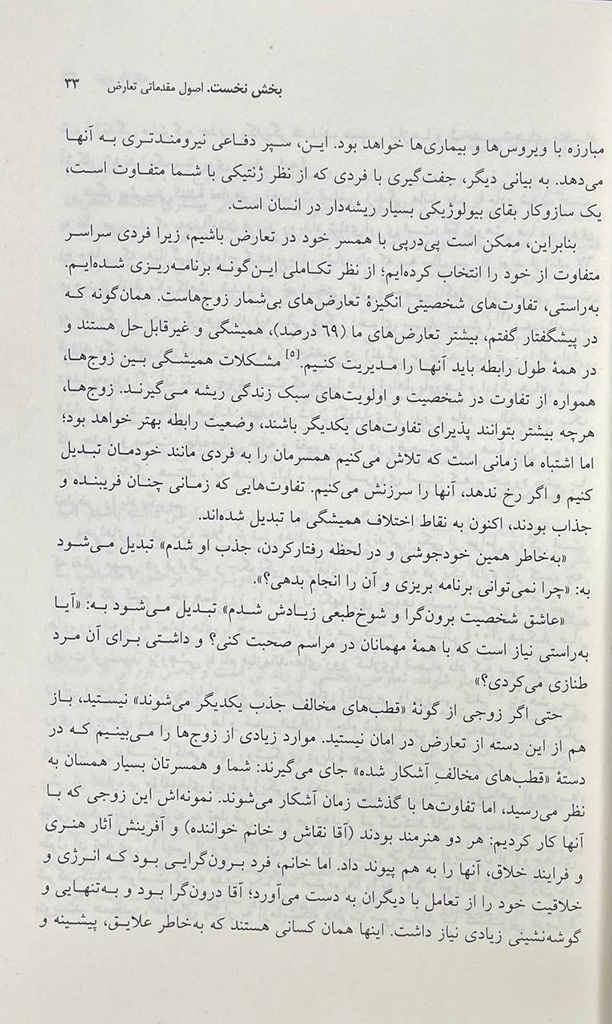 بخش نخست. اصول مقدماتی تعارض ۳۳
مبارزه با ویروس‌ها و بیماری‌ها خواهد بود. این، سپر دفاعی نیرومندتری به آنها
می‌دهد. به بیانی دیگر، جفت‌گیری با فردی که از نظر ژنتیکی با شما متفاوت است،
یک سازوکار بقای بیولوژیکی بسیار ریشه‌دار در انسان است.
بنابراین، ممکن است پی‌درپی با همسر خود در تعارض باشیم، زیرا فردی سراسر
متفاوت از خود را انتخاب کرده‌ایم؛ از نظر تکاملی این‌گونه برنامه‌ریزی شده‌ایم.
به‌راستی، تفاوت‌های شخصیتی انگیزهٔ تعارض‌های بی‌شمار زوج‌هاست. همان‌گونه که
در پیشگفتار گفتم، بیشتر تعارض‌های ما (۶۹ درصد)، همیشگی و غیرقابل‌حل هستند و
در همهٔ طول رابطه باید آنها را مدیریت کنیم.[۵] مشکلات همیشگی بین زوج‌ها،
همواره از تفاوت در شخصیت و اولویت‌های سبک زندگی ریشه می‌گیرند. زوج‌ها،
هرچه بیشتر بتوانند پذیرای تفاوت‌های یکدیگر باشند، وضعیت رابطه بهتر خواهد بود؛
اما اشتباه ما زمانی است که تلاش می‌کنیم همسرمان را به فردی مانند خودمان تبدیل
کنیم و اگر رخ ندهد، آنها را سرزنش می‌کنیم. تفاوت‌هایی که زمانی چنان فریبنده و
جذاب بودند، اکنون به نقاط اختلاف همیشگی ما تبدیل شده‌اند.
«به‌خاطر همین خودجوشی و در لحظه رفتارکردن، جذب او شدم» تبدیل می‌شود
به: «چرا نمی‌توانی برنامه بریزی و آن را انجام بدهی؟».
«عاشق شخصیت برون‌گرا و شوخ‌طبعی زیادش شدم» تبدیل می‌شود به: «آیا
به‌راستی نیاز است که با همهٔ مهمانان در مراسم صحبت کنی؟ و داشتی برای آن مرد
طنازی می‌کردی؟»
حتی اگر زوجی از گونهٔ «قطب‌های مخالف جذب یکدیگر می‌شوند» نیستید، باز
هم از این دسته از تعارض در امان نیستید. موارد زیادی از زوج‌ها را می‌بینیم که در
دستهٔ «قطب‌های مخالفِ آشکار شده» جای می‌گیرند: شما و همسرتان بسیار همسان به
نظر می‌رسید، اما تفاوت‌ها با گذشت زمان آشکار می‌شوند. نمونه‌اش این زوجی که با
آنها کار کردیم: هر دو هنرمند بودند (آقا نقاش و خانم خواننده) و آفرینش آثار هنری
و فرایند خلاق، آنها را به هم پیوند داد. اما خانم، فرد برون‌گرایی بود که انرژی و
خلاقیت خود را از تعامل با دیگران به دست می‌آورد؛ آقا درون‌گرا بود و به‌تنهایی و
گوشه‌نشینی زیادی نیاز داشت. اینها همان کسانی هستند که به‌خاطر علایق، پیشینه و